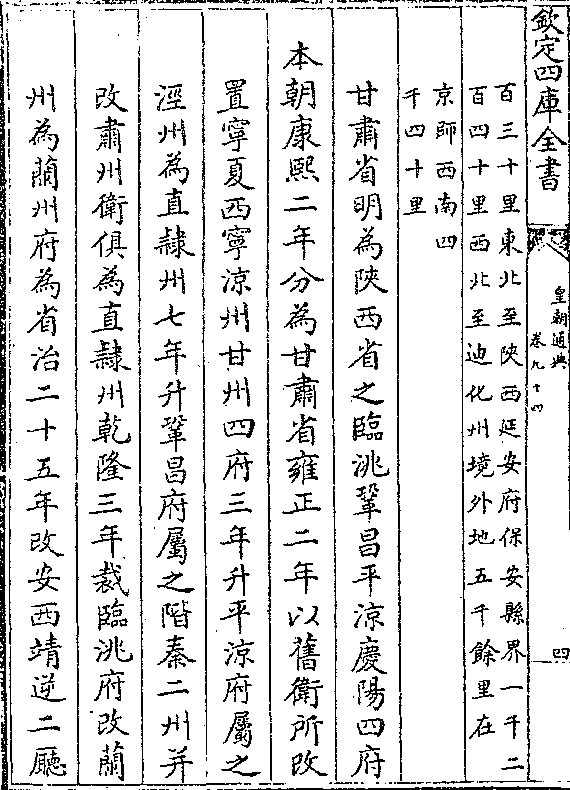 欽定四庫全書
皇朝通典
卷九十四
四
百三十里東北至陜西延安府保安縣界一千二
百四十里西北至迪化州境外地五千餘里在
京師西南四
千四十里
甘肅省明為陜西省之臨洮鞏昌平涼慶陽四府
本朝康熙二年分為甘肅省雍正二年以舊衛所改
置寧夏西寧涼州甘州四府三年升平涼府屬之
涇州為直隸州七年升鞏昌府屬之階秦二州并
改肅州衛俱為直隸州乾隆三年裁臨洮府改蘭
州為蘭州府為省治二十五年改安西靖逆二廳